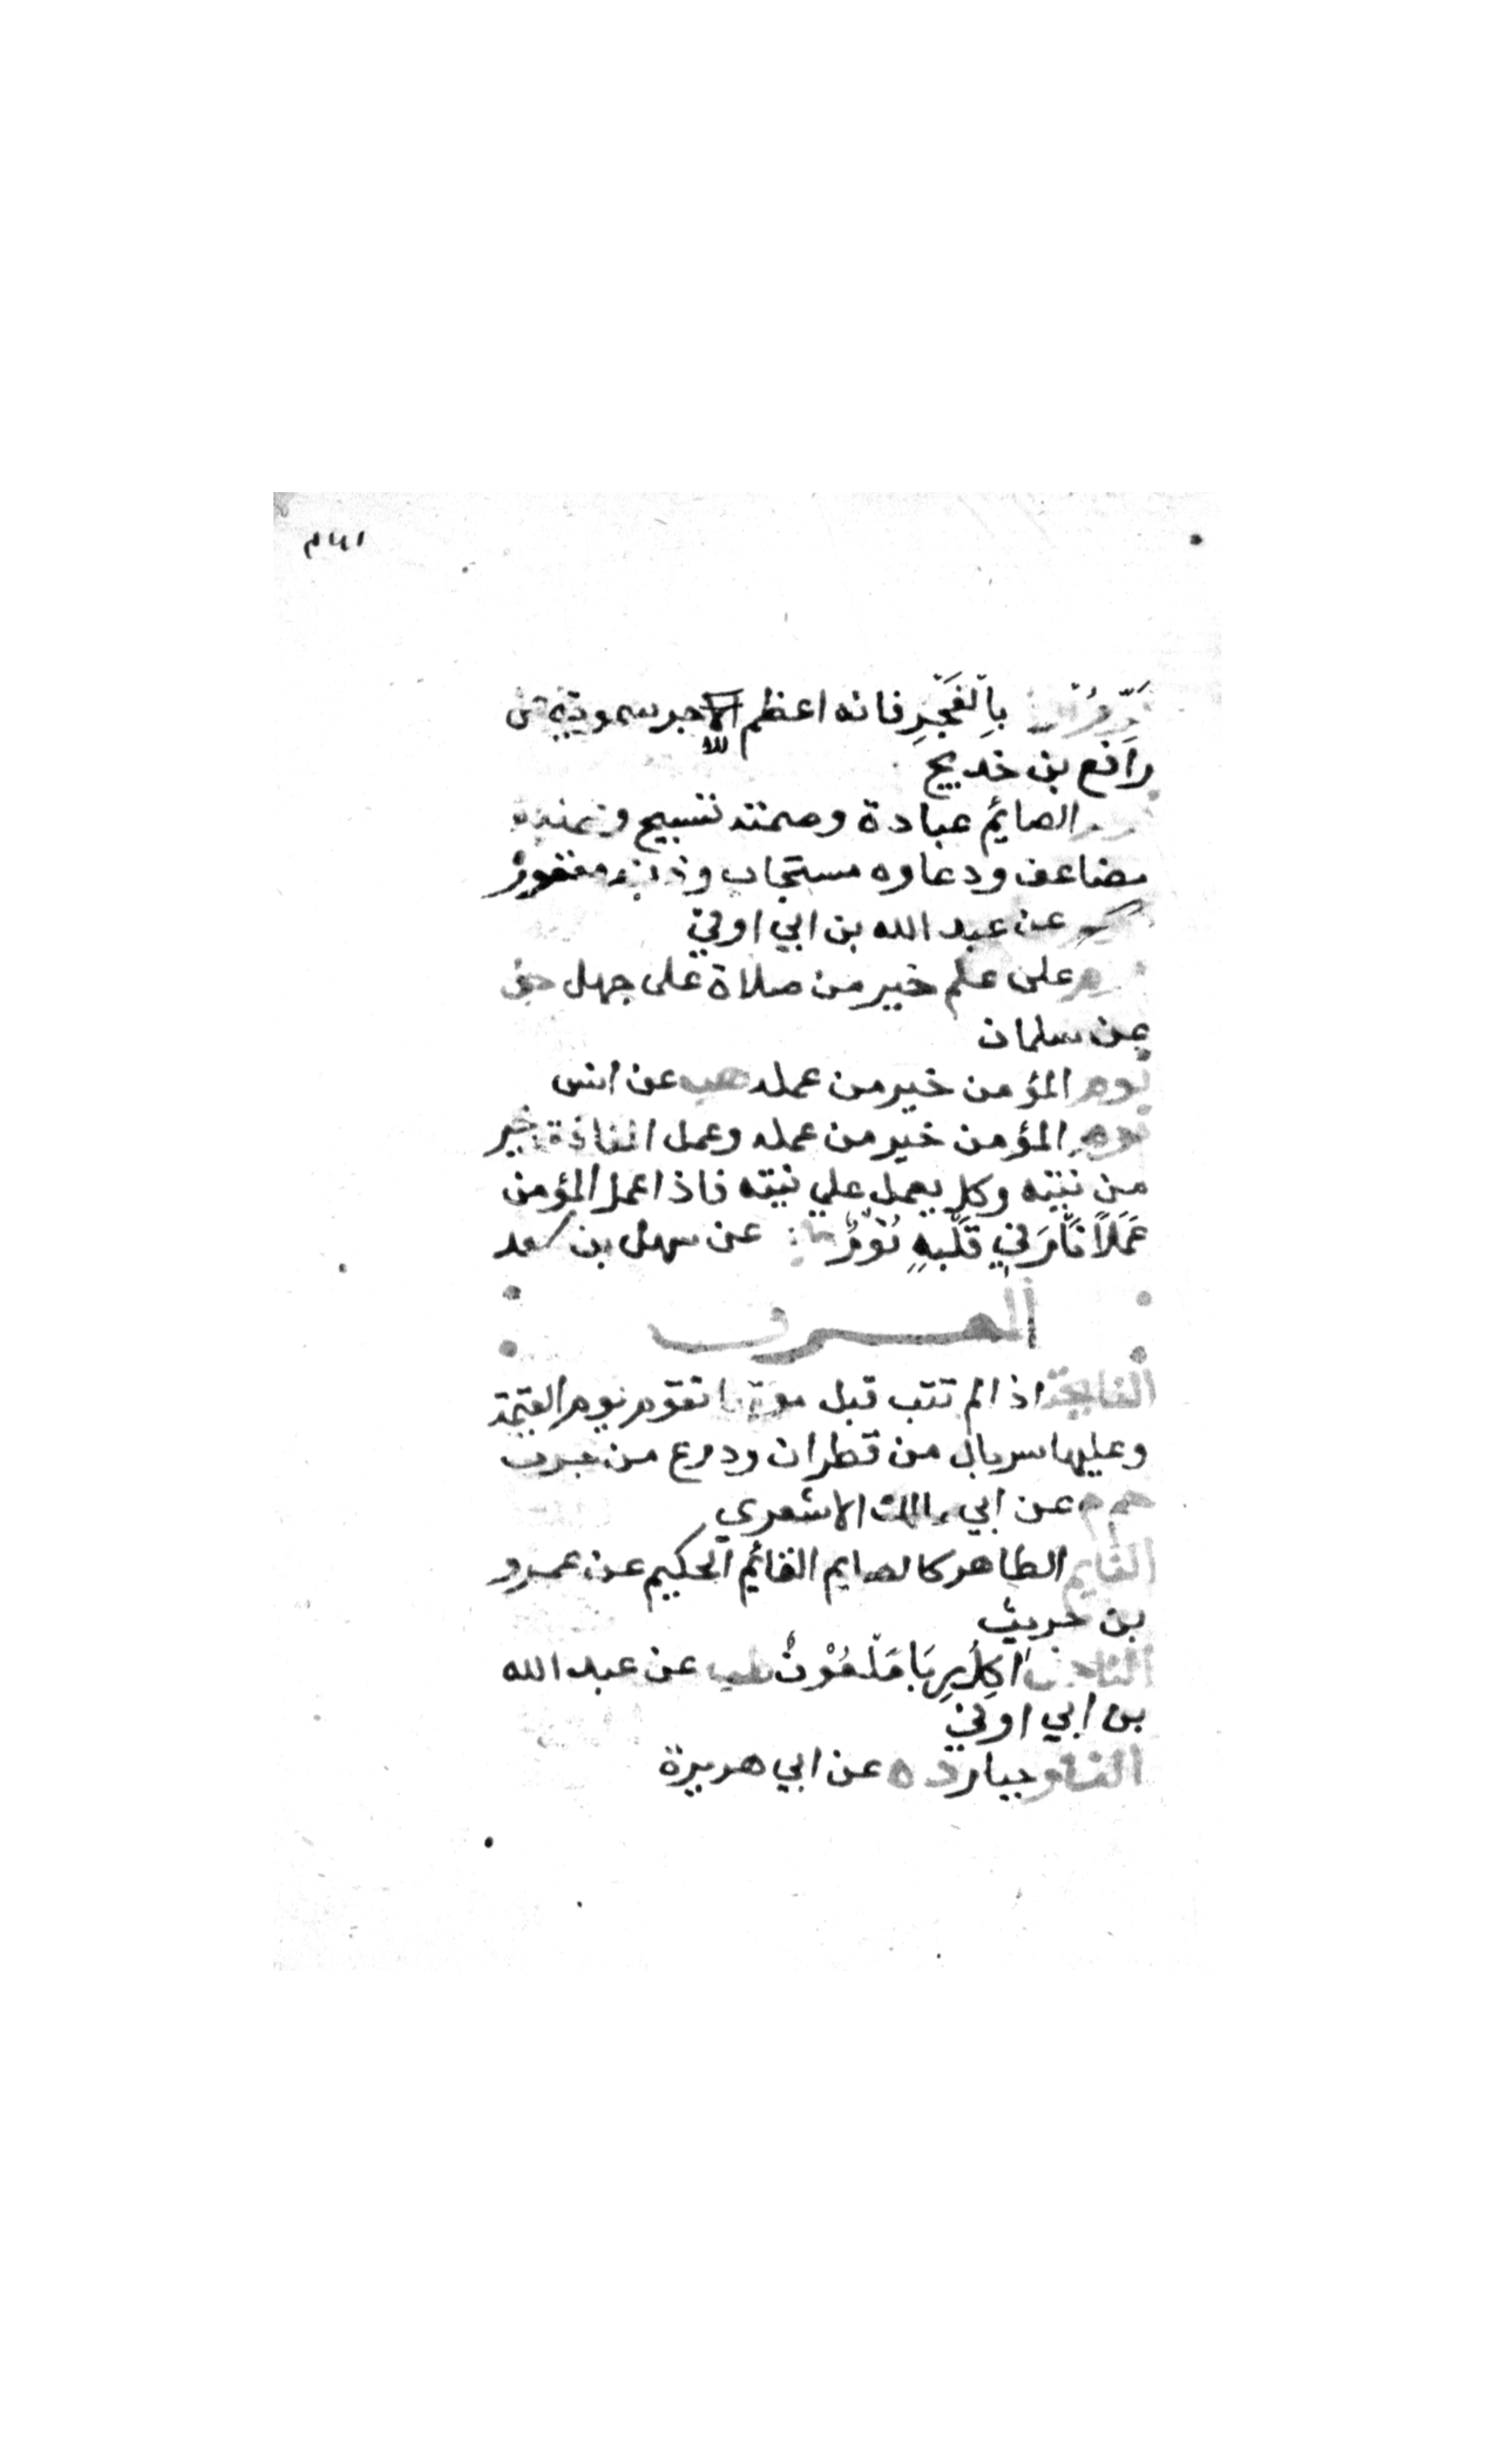 نَوِّرُوْا بِالْفَجْرِ فانه اعظم للاجر سمويه عن
رافع بن خديج
نوم الصايم عبادة وصمته تسبيح وعمله
مضاعف ودعاوه مستجاب وذنبه مغفور
عن عبد الله بن ابي اوفي
نوم على علم خير من صلاة على جهل حل
عن سلمان
نوم المؤمن خير من عمله هب عن انس
المؤمن خير من عمله وعمل المنافق خير
من نيته وكل يعمل علي نيته فاذا عمل المؤمن
عَمَلاً ثَارَ فِي قَلْبِهِ نُوْرٌ عن سهل بن سعد
النايحة اذا لم تتب قبل موتها تقوم يوم القيمة
وعليها سربال من قطران ودرع من جرب
حم م عن ابي مالك الاشعري
النايم الطاهر كالصايم القائم الحكيم عن عمرو
بن حريث
اكِلُ رِبَا مَلْعُوْنٌ طب عن عبد الله
بن ابي اوفي
النار جبار د ه عن ابي هريرة